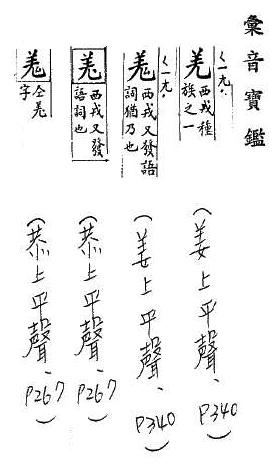 彙音寶鑑
ㄑㄧㄤ.
羌
西戎種
族之一
(姜上平聲、P340)
ㄑㄧㄤ.
羗
西戎又發語
詞猶乃也
(姜上平聲、P340)
羌
西戎又發
語詞也
(恭上平聲、P267)
羗
仝羌
字
(恭上平聲、P267)